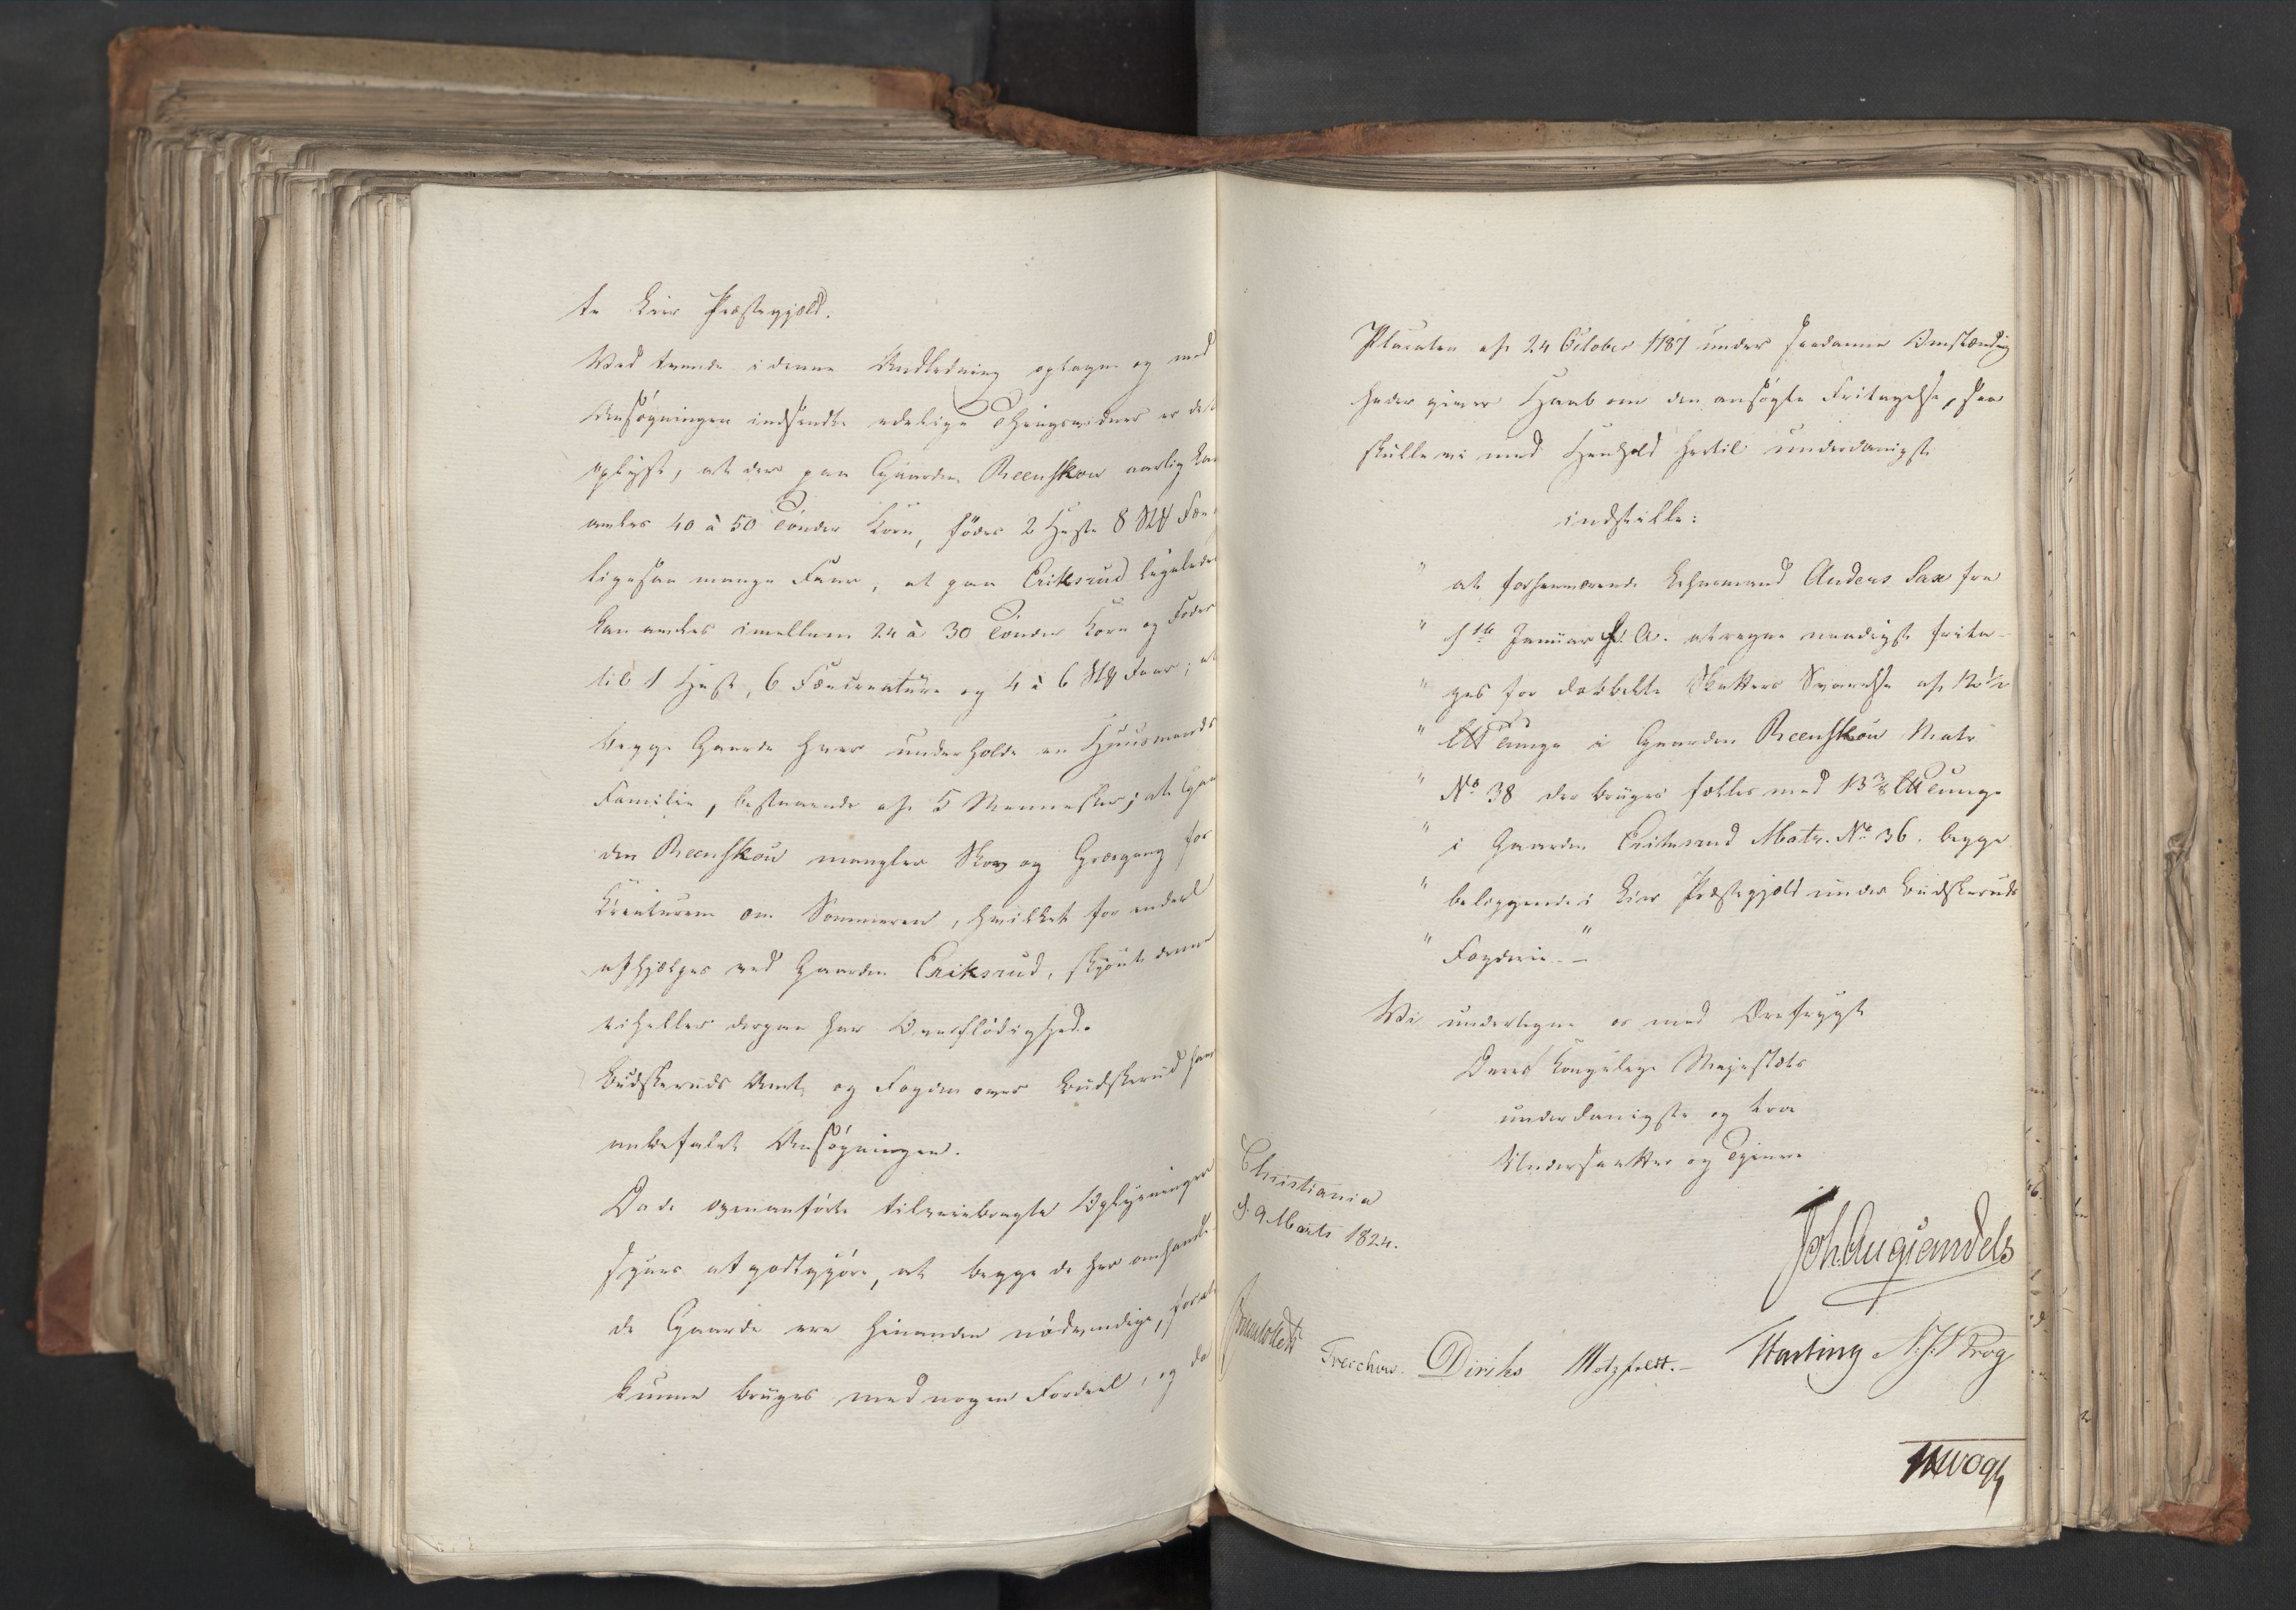 te Lier Præstegjæld.
Ved tvende i denne Andledning optagne og med
Ansøgningen indsendte edelige Thingsvidner er det
oplyst, at der paa Gaarden Reenskou aarlig kan
avles 40 à 50 Tönder Korn, födes 2 Heste 8 Stk Fæe,
ligesaa mange Faar, at paa Eriksrud ligeledes
kan avles imellem 24 à 30 Tönder Korn og Foder
til 1 Hest, 6 Fæecreature og 4 à 6 Stk Faar; at
begge Gaarde hver underholde en Huusmands
Familie, bestaaende af 5 Mennesker; at Gaar
den Reenskou mangler Skov og Græsgang for
Creaturene om Sommeren, hvilket for endeel
afhjælpes ved Gaarden Eriksrud, skjönt denne
ei heller derpaa har Overflödighed.
Budskeruds Amt og Fogden over Budskerud have
anbefalet Ansøgningen.
Da de ovenanförte tilveiebragte Oplysninger
synes at godtgjöre, at begge de her omhandle
de Gaarde ere hinanden nödvendige, for at
kunne bruges med nogen Fordeel, og da
Placaten af 24 October 1787 under saadanne Omstændig
heder giver Haab om den ansögte Fritagelse, saa
skulle vi med Henhold hertil underdanigst
indstille:
" at forhenværende Lehnsmand Anders Sax fra
" 1ste Januar d. A. at regne naadigst frita-
" ges for dobbelte Skatters Svarelse af 12 1/2
" L℔ Tunge i Gaarden Reenskou Matr.
" No 38 der bruges fælles med 13 3/8 L℔ Tunge
" i Gaarden Eriksrud Matr. No 36. begge
" beliggende i Lier Præstegjæld under Budskeruds
" Fogderie. "
Vi undertegne os med Ærefrygt
Deres Kongelige Majestæts
underdanigste og troe
Undersaatter og Tjenere
Christiania
d. 9 Marts 1824.
Joh. Aug Sandels
Sommerhielm Treschow. Diriks Motzfeldt. Hasting N. J. S Krog
JHVogt